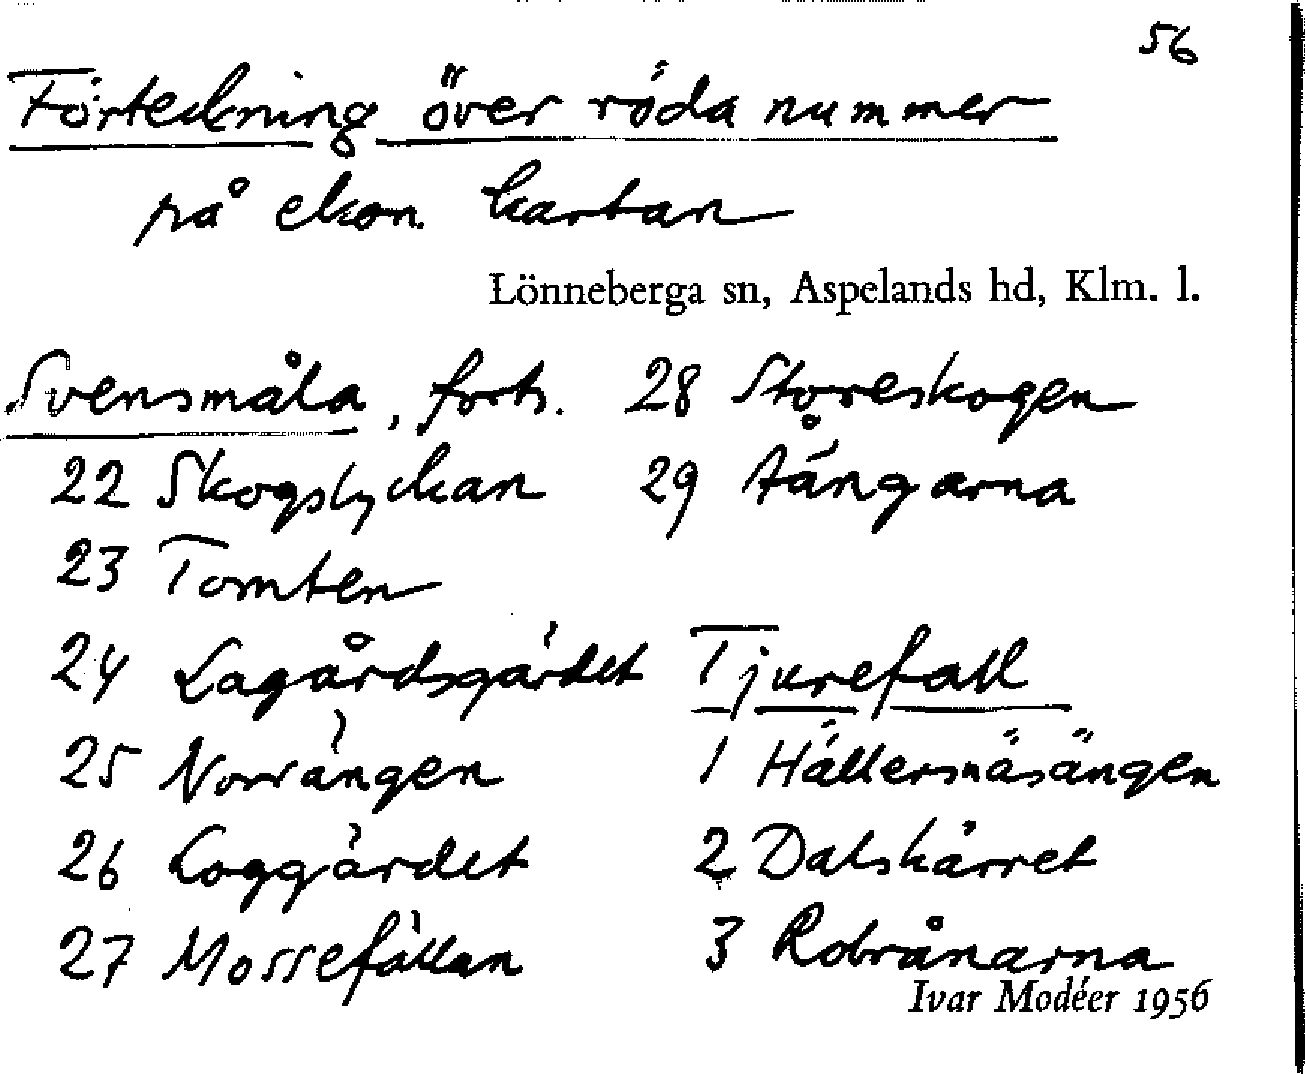 56
Förteckning över röda nummer
på ekon. kartan
Lönneberga sn, Aspelands hd, Klm. l.
Svensmåla, forts.
22 Skogslyckan
23 Tomten
24 Lagårdsgärdet
25 Norrängen
26 Loggärdet
27 Mossefällan
28 Storeskogen
29 Aängarna
Tjurefall
1 Hällersnäsängen
2 Dalskärret
3 Robrånarna
Ivar Modéer 1956